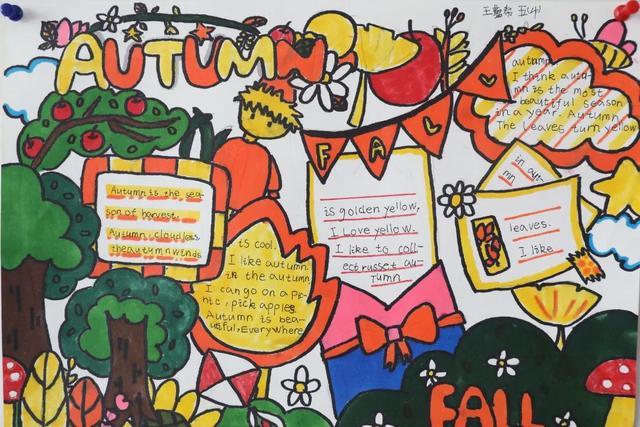 AUTUMN
FALL
autumn.
I think autu-
mn is the most
beautiful season
in a year. Autumn
The leaves turn yellow
Autumn is the sea-
son of harvest.
Autumn, cloudless
the autumn winds
is cool.
I like autumn.
in the autumn
I can go on a pi-
nic, pick apples
Autumn is bea-
utiful, Everywhere
is golden yellow,
I Love yellow.
I like to coll-
ect russet au-
Tumn
in aut-
mn
leaves.
I like
FALL